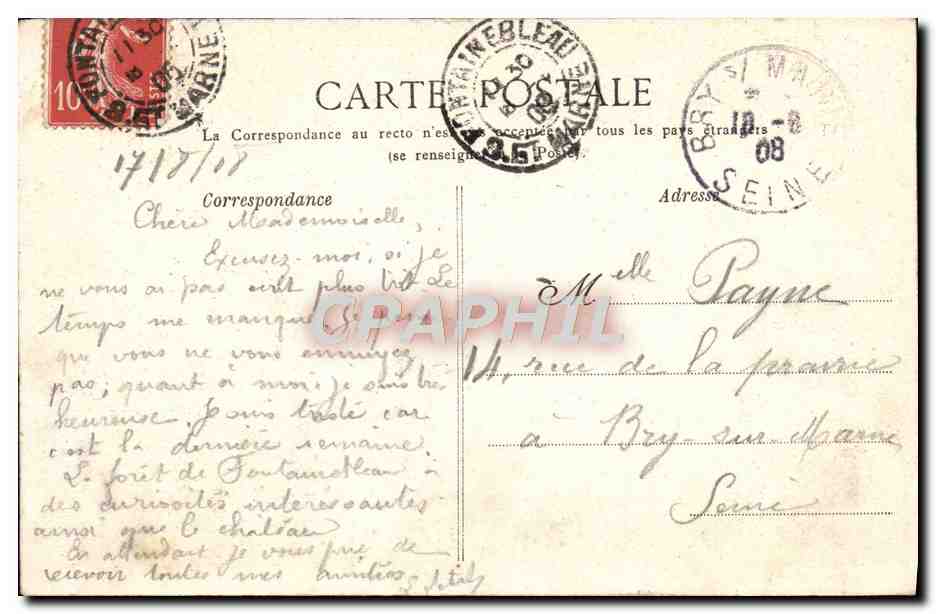 10
FONTAINEBLEAU
11 30
08
S. ET MARNE
FONTAINEBLEAU
30
08
S. ET MARNE
BRY S/ MARNE
18 - 8
08
SEINE
CARTE POSTALE
La Correspondance au recto n'est pas acceptée par tous les pays étrangers
(se renseigner à la Poste).
17/8/08
Correspondance
Adresse
Chère Mademoiselle,
Excusez-moi, si je
ne vous ai pas écrit plus tôt Le
temps me manque. Je pense
que vous ne vous ennuyez
pas, quant à moi je suis très
heureuse. Je suis triste car
c'est la dernière semaine.
La forêt de Fontainebleau a
des curiosités intéressantes
ainsi que le château
En attendant je vous prie de
recevoir toutes mes amitiés
Melle Payne
14, rue de la prairie
à Bry-sur-Marne
Seine
CPAPHIL